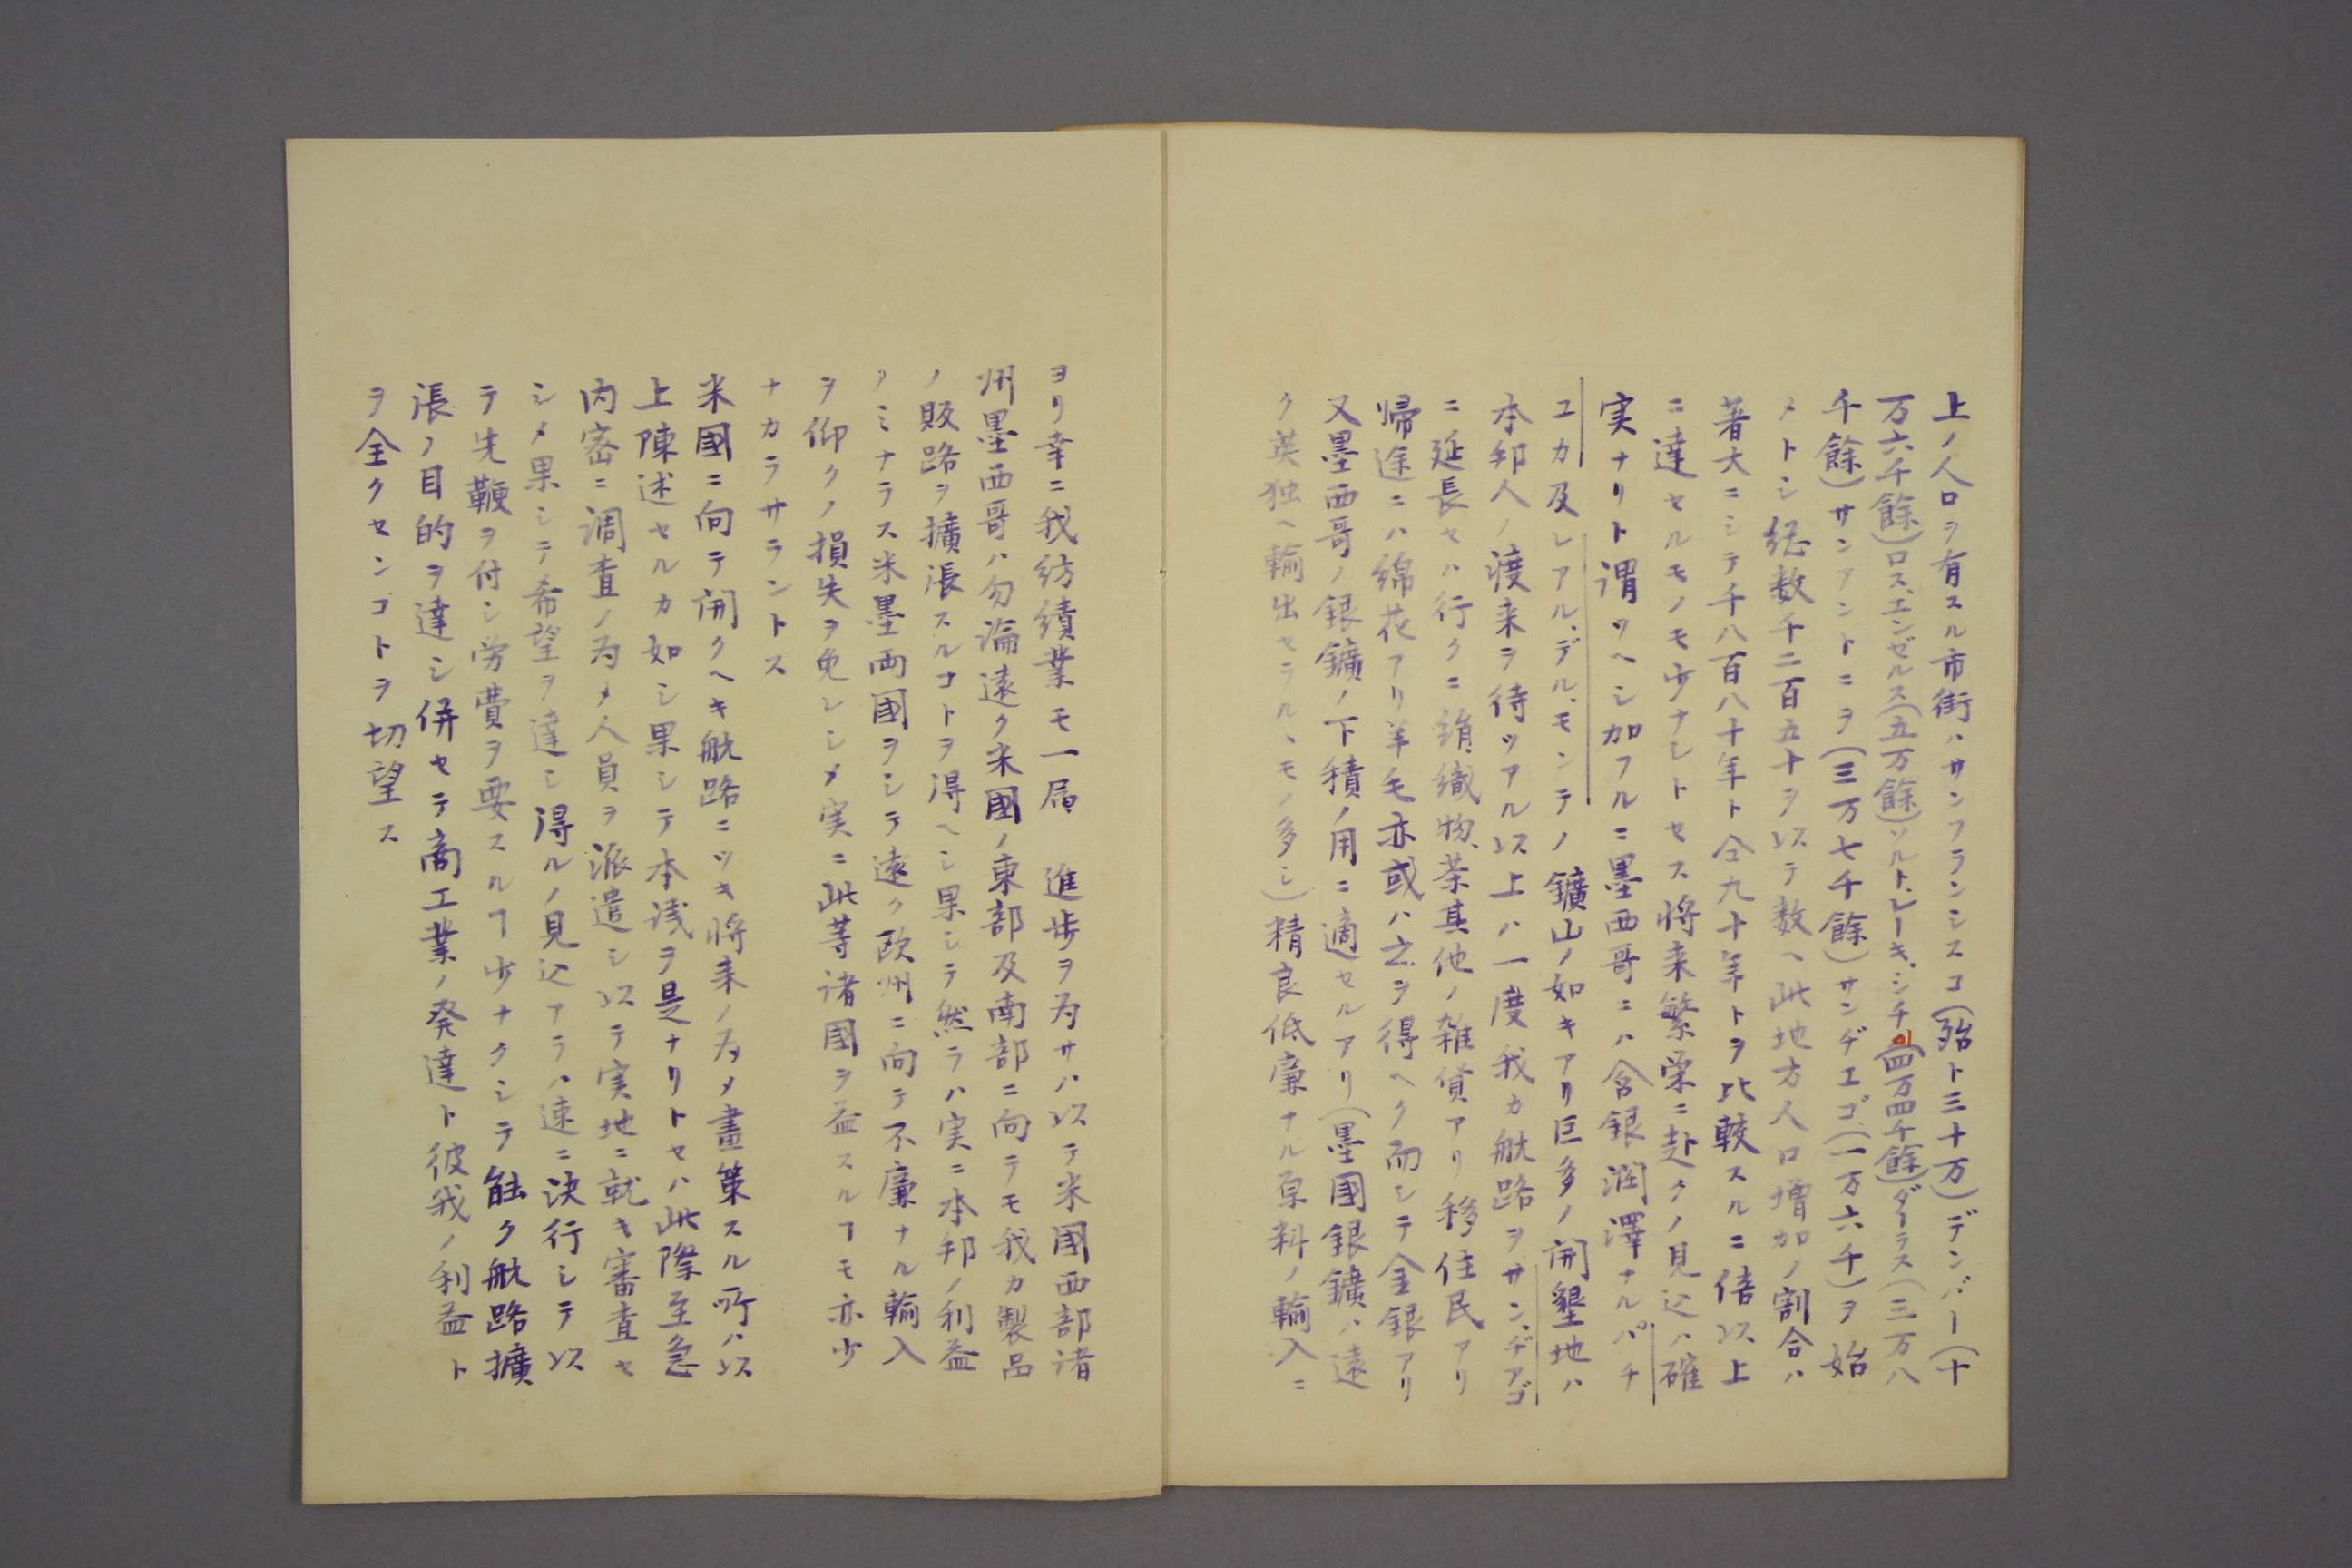 上ノ人口ヲ有スル市街ハサンフランシスコ(殆ト三十万)デンバー(十
万六千餘)ロス、エンゼルス(五万餘)ソルト、レーキ、シチ(四万四千餘)ダーラス(三万八
千餘)サンアントニヲ(三万七千餘)サンヂエゴ(一万六千)ヲ始
メトシ総数千二百五十ヲ以テ数ヘ此地方人口増加ノ割合ハ
著大ニシテ千八百八十年ト仝九十年トヲ比較スルニ倍以上
ニ達セルモノモ少ナシトセス将来繁栄ニ赴クノ見込ハ確
実ナリト謂ツヘシ加フルニ墨西哥ニハ含銀潤澤ナルパチ
ユカ及レアル、デル、モンテノ鑛山ノ如キアリ巨多ノ開墾地ハ
本邦人ノ渡来ヲ待ツアル以上ハ一度我カ航路ヲサン、ヂアゴ
ニ延長セハ行クニ絹織物、茶其他ノ雑貨アリ移住民アリ
帰途ニハ綿花アリ羊毛亦或ハ之ヲ得ヘク而シテ金銀アリ
又墨西哥ノ銀鑛ノ下積ノ用ニ適セルアリ(墨國銀鑛ハ遠
ク英独ヘ輸出セラルヽモノ多シ)精良低廉ナル原料ノ輸入ニ
ヨリ幸ニ我紡績業モ一層 進歩ヲ為サハ以テ米國西部諸
州墨西哥ハ勿論遠ク米國ノ東部及南部ニ向テモ我カ製品
ノ販路ヲ擴張スルコトヲ得ヘシ果シテ然ラハ実ニ本邦ノ利益
ノミナラス米墨両國ヲシテ遠ク欧州ニ向テ不廉ナル輸入
ヲ仰クノ損失ヲ免レシメ実ニ此等諸國ヲ益スルヿモ亦少
ナカラサラントス
米國ニ向テ開クヘキ航路ニツキ将来ノ為メ畫策スル所ハ以
上陳述セルカ如シ果シテ本議ヲ是ナリトセハ此際至急
内密ニ調査ノ為メ人員ヲ派遣シ以テ実地ニ就キ審査セ
シメ果シテ希望ヲ達シ得ルノ見込アラハ速ニ決行シテ以
テ先鞭ヲ付シ労費ヲ要スルヿ少ナクシテ能ク航路擴
張ノ目的ヲ達シ併セテ商工業ノ発達ト彼我ノ利益ト
ヲ全クセンコトヲ切望ス